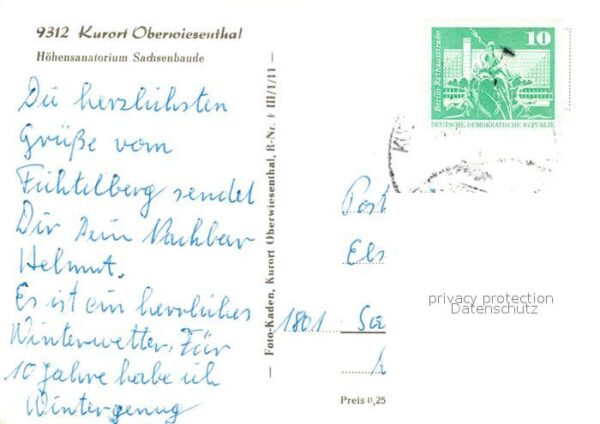 9312 Kurort Oberwiesenthal
Höhensanatorium Sachsenbaude
Die herzlichsten
Grüße vom
Fichtelberg sendet
Dir Dein Nachbar
Helmut.
Es ist ein herrliches
Winterwetter. Für
10 Jahre habe ich
Winter genug
Foto-Kaden, Kurort Oberwiesenthal, R-Nr. F III/1/11
10
Berlin Rathausstraße
DEUTSCHE DEMOKRATISCHE REPUBLIK
KU
Post
Els
1801
privacy protection
Datenschutz
Preis 0,25